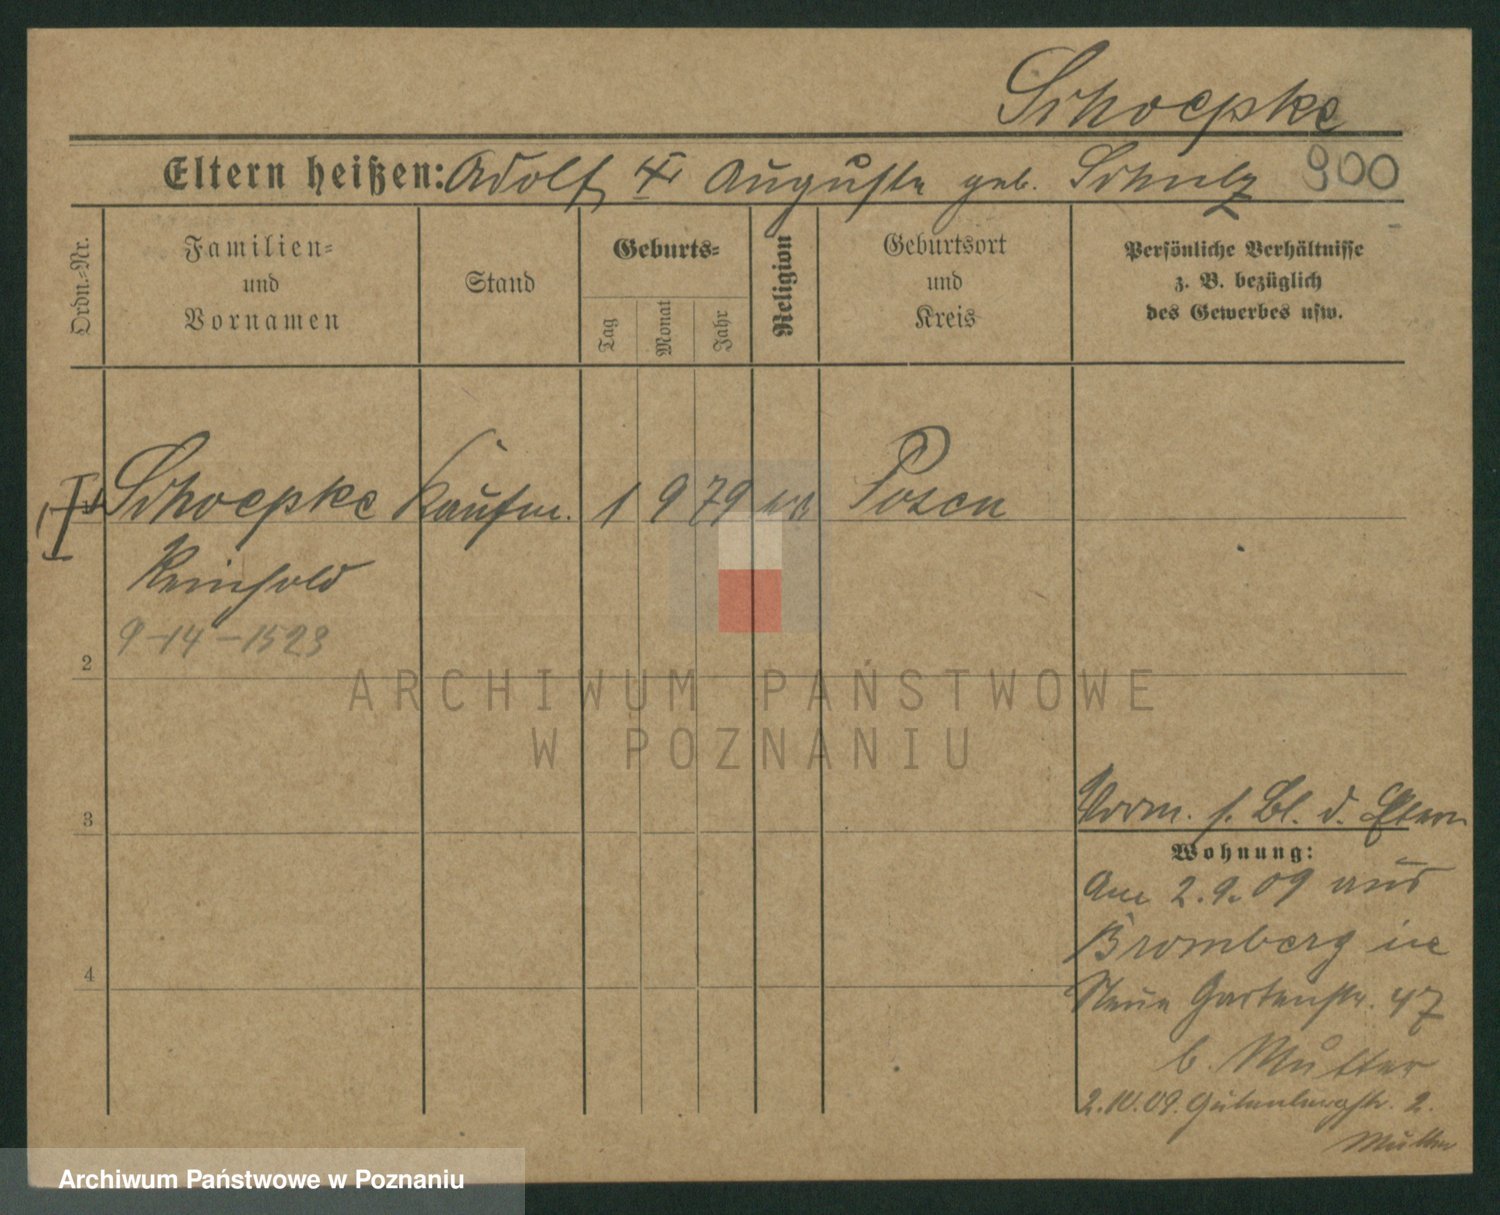 Schoepke
Eltern heißen: Adolf Auguste geb. Schulz 900
Ordn.-Nr.
Familien-
und
Vornamen
Stand
Geburts-
Tag
Monat
Jahr
Religion
Geburtsort
und
Kreis
Persönliche Verhältnisse
z. B. bezüglich
des Gewerbes usw.
Schoepke Kaufm. 1 9 79 Posen
Reinhold
9-14-1523
2
ARCHIWUM PAŃSTWOWE
W POZNANIU
3
Vorm. s. Bl. d. Eltern
Wohnung:
Am 2.9.09 aus
Bromberg in
4
Neue Gartenstr. 47
b. Mutter
2.10.09. Gutenbergstr. 2.
Mutter
Archiwum Państwowe w Poznaniu